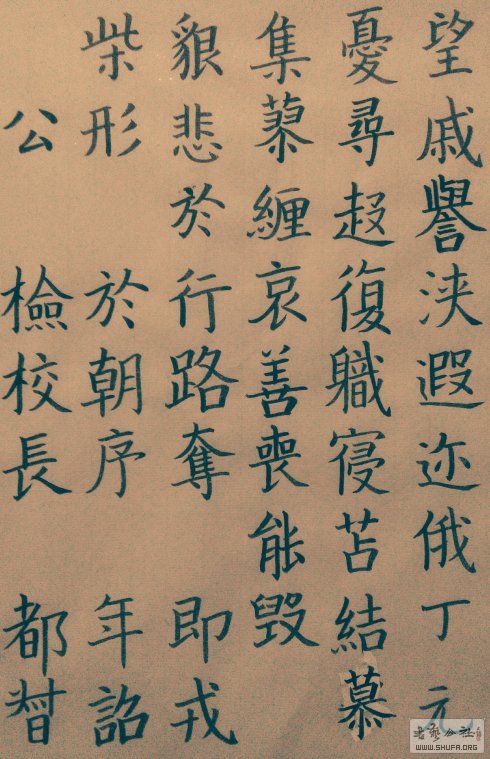 望戚譽浹遐迩俄丁元
憂尋起復職寑苫結慕
集蓼纏哀善喪能毀
貌悲於行路奪 即戎
柴形 於朝序 年詔
公 檢校長 都督
書藝公社
WWW.SHUFA.ORG